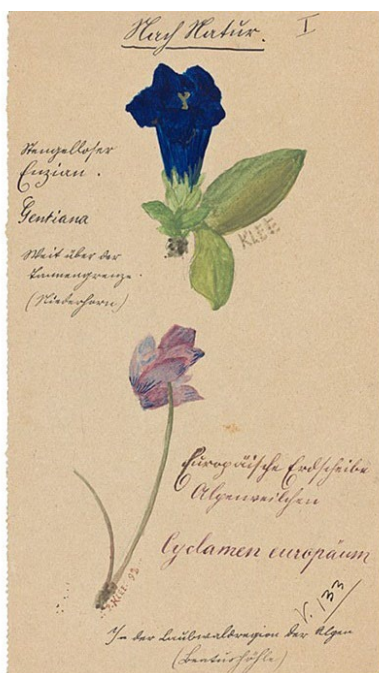 Nach Natur.
I
Stengelloser
Enzian.
Gentiana
Weit über der
Tannengrenze.
(Niederhorn)
KLEE
Europäische Erdscheibe
Alpenveilchen
Cyclamen europäum
KLEE. 92.
V. 133
In der Laubwaldregion der Alpen
(Beatushöhle)